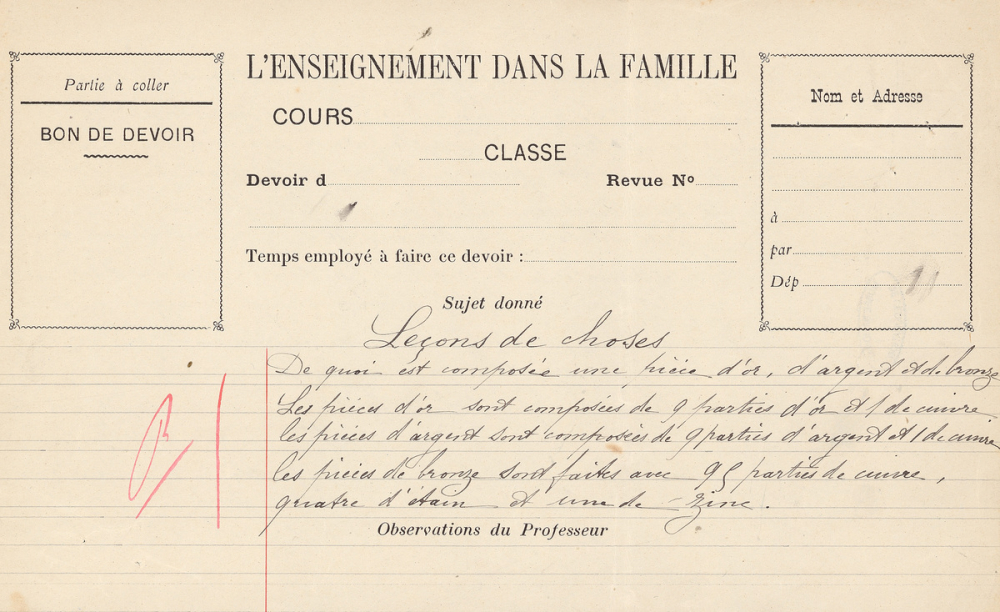 Partie à coller
BON DE DEVOIR
L'ENSEIGNEMENT DANS LA FAMILLE
COURS
CLASSE
Devoir d
Revue Nº
Temps employé à faire ce devoir :
Nom et Adresse
à
par
Dép
Sujet donné
Leçons de choses
De quoi est composée une pièce d'or, d'argent et de bronze
Les pièces d'or sont composées de 9 parties d'or et 1 de cuivre
les pièces d'argent sont composées de 9 parties d'argent et 1 de cuivre
les pièces de bronze sont faites avec 95 parties de cuivre,
quatre d'étain et une de zinc.
Observations du Professeur